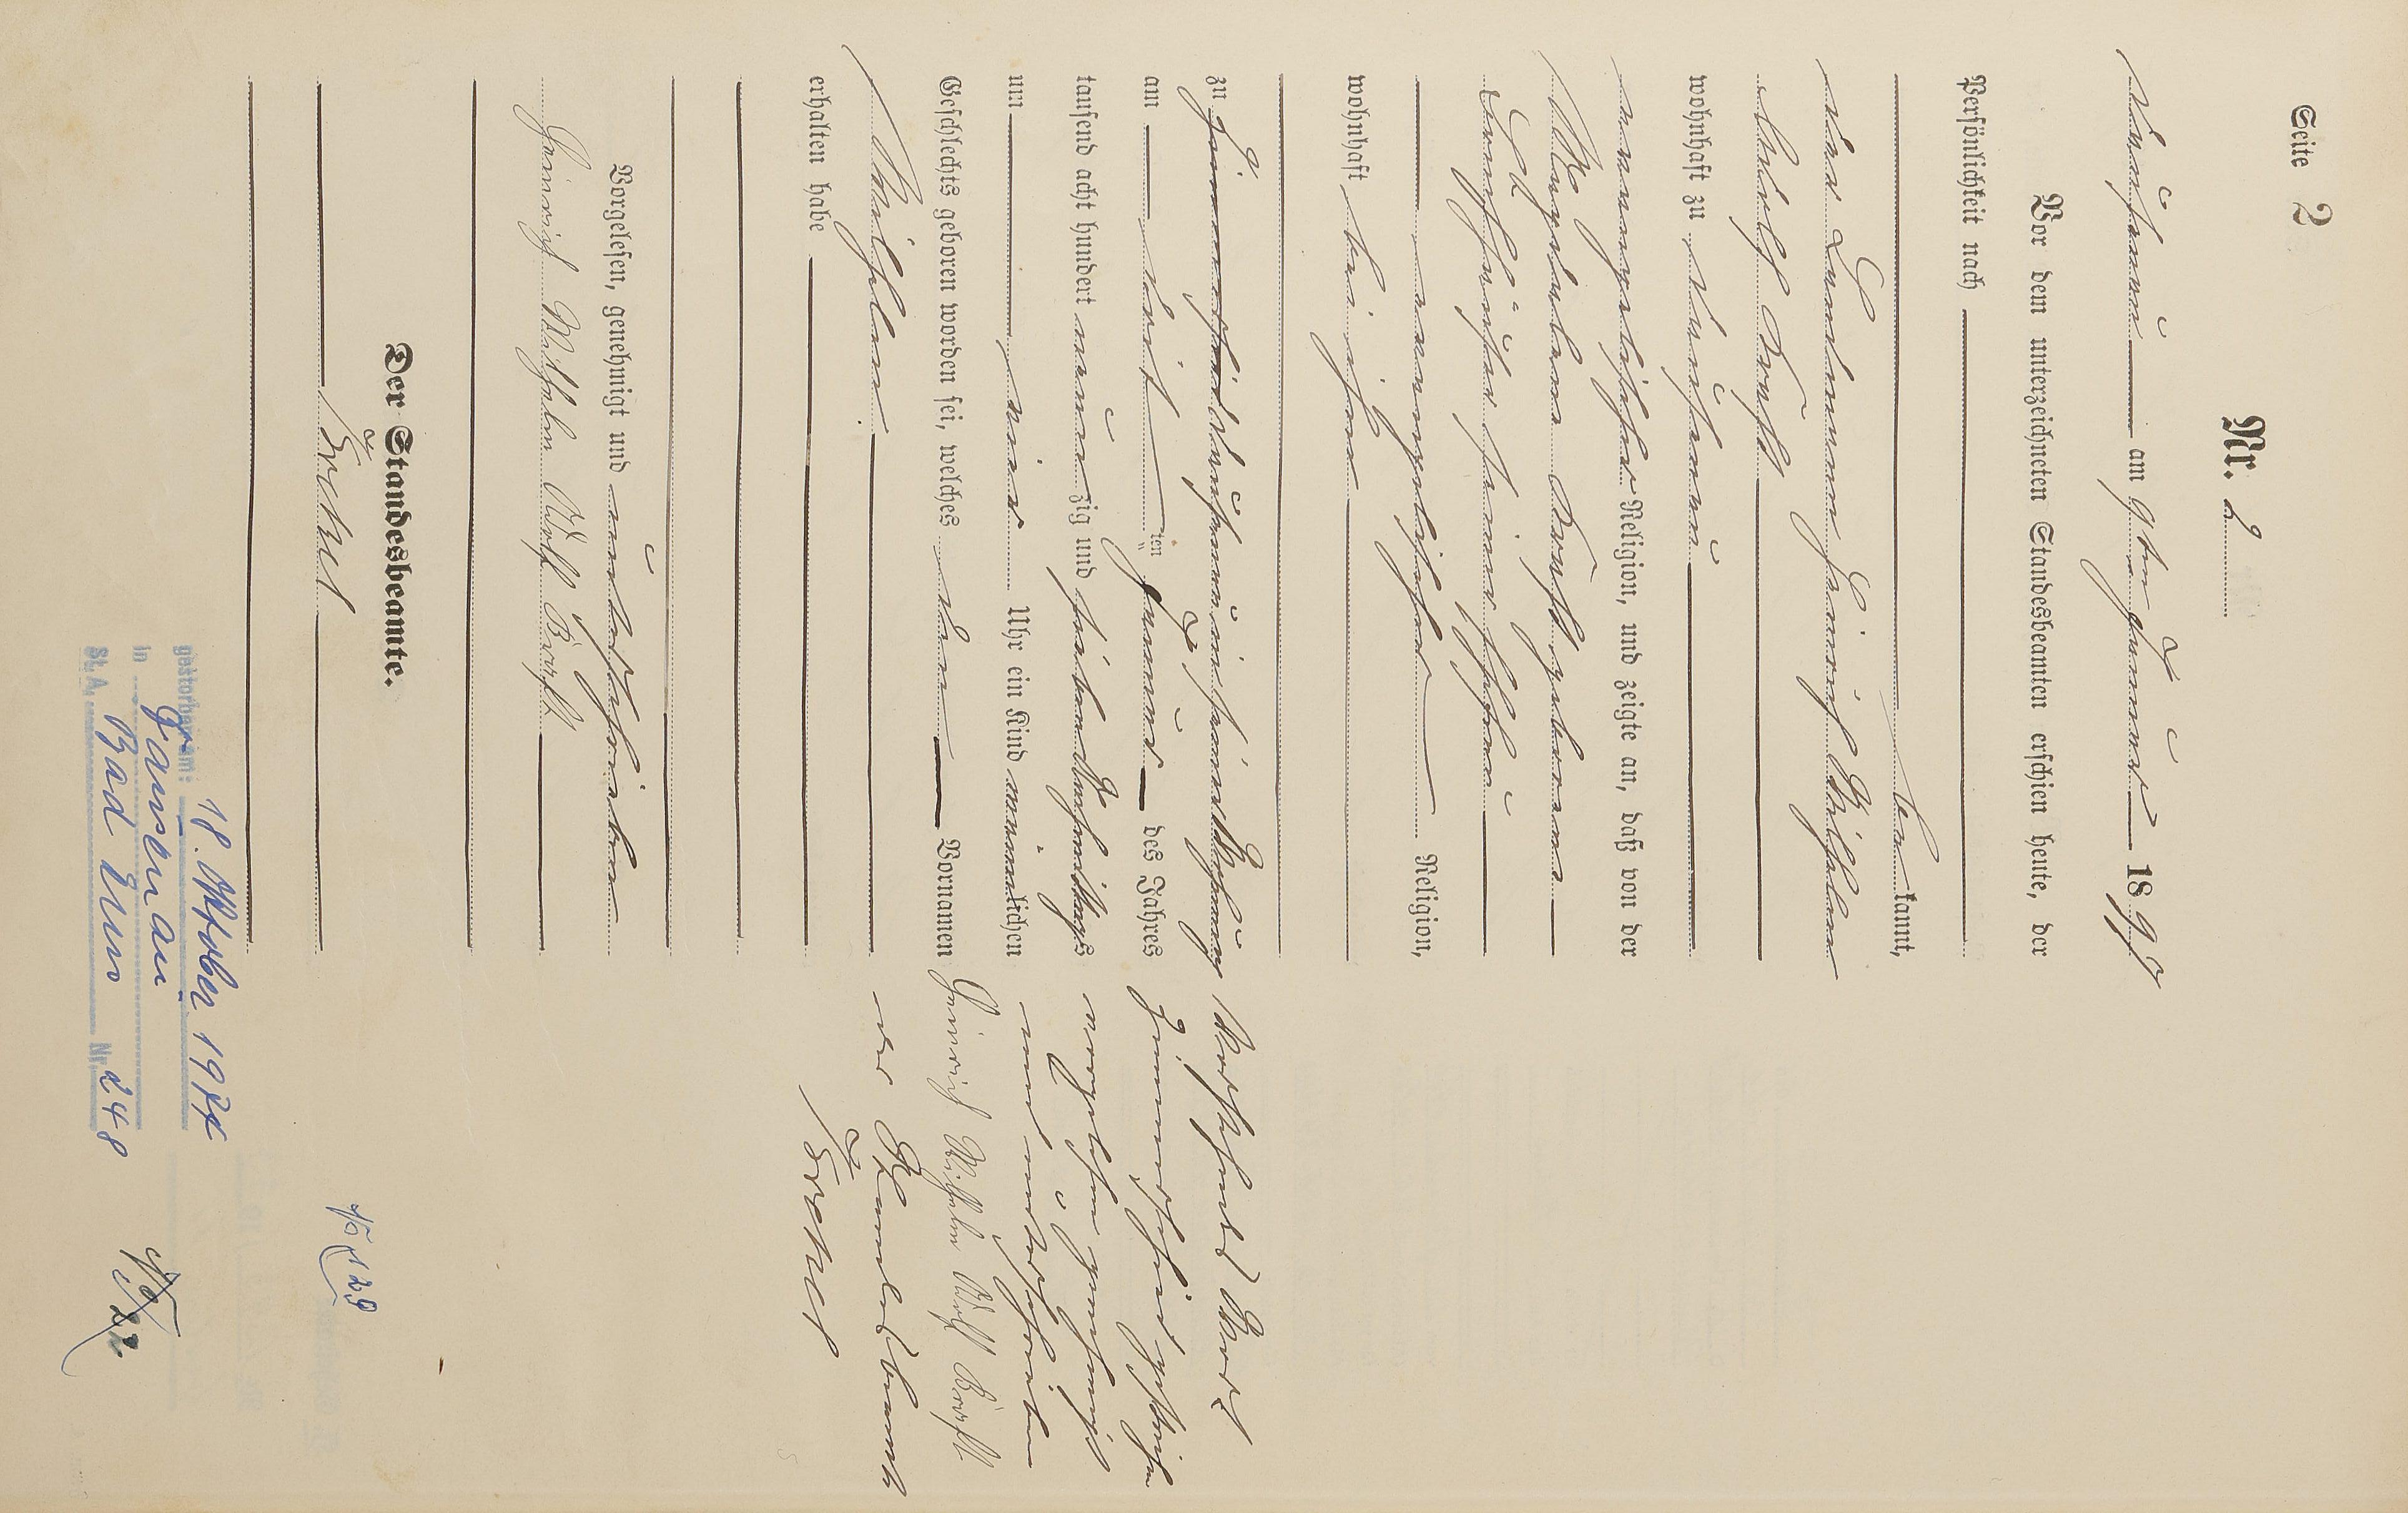 Seite 2
Nr. 2
Dausenau am 9ten Januar 1897
Vor dem unterzeichneten Standesbeamten erschien heute, der
Persönlichkeit nach
bekannt,
der Landmann Heinrich Wilhelm
Adolf
wohnhaft zu Dausenau
evangelischer Religion, und zeigte an, daß von der
Magdalena geborene
seiner Ehefrau
evangelischer Religion,
wohnhaft bei ihm
zu Dausenau in seiner Wohnung
am drit ten Januar des Jahres
tausend acht hundert neunzig und sieben Nachmittags
um vier Uhr ein Kind männlichen
Geschlechts geboren worden sei, welches den Vornamen
Wilhelm
erhalten habe
Vorgelesen, genehmigt und unterschrieben
Heinrich Wilhelm Adolf
Der Standesbeamte.
Vorstehend Wort
Zimmerschied gestrichen
vorgelesen genehmigt
und unterschrieben
Heinrich Wilhelm Adolf
der Standesbeamte
gestorben am: 18. Oktober
in Dausenau
St. A. Bad Ems Nr. 248